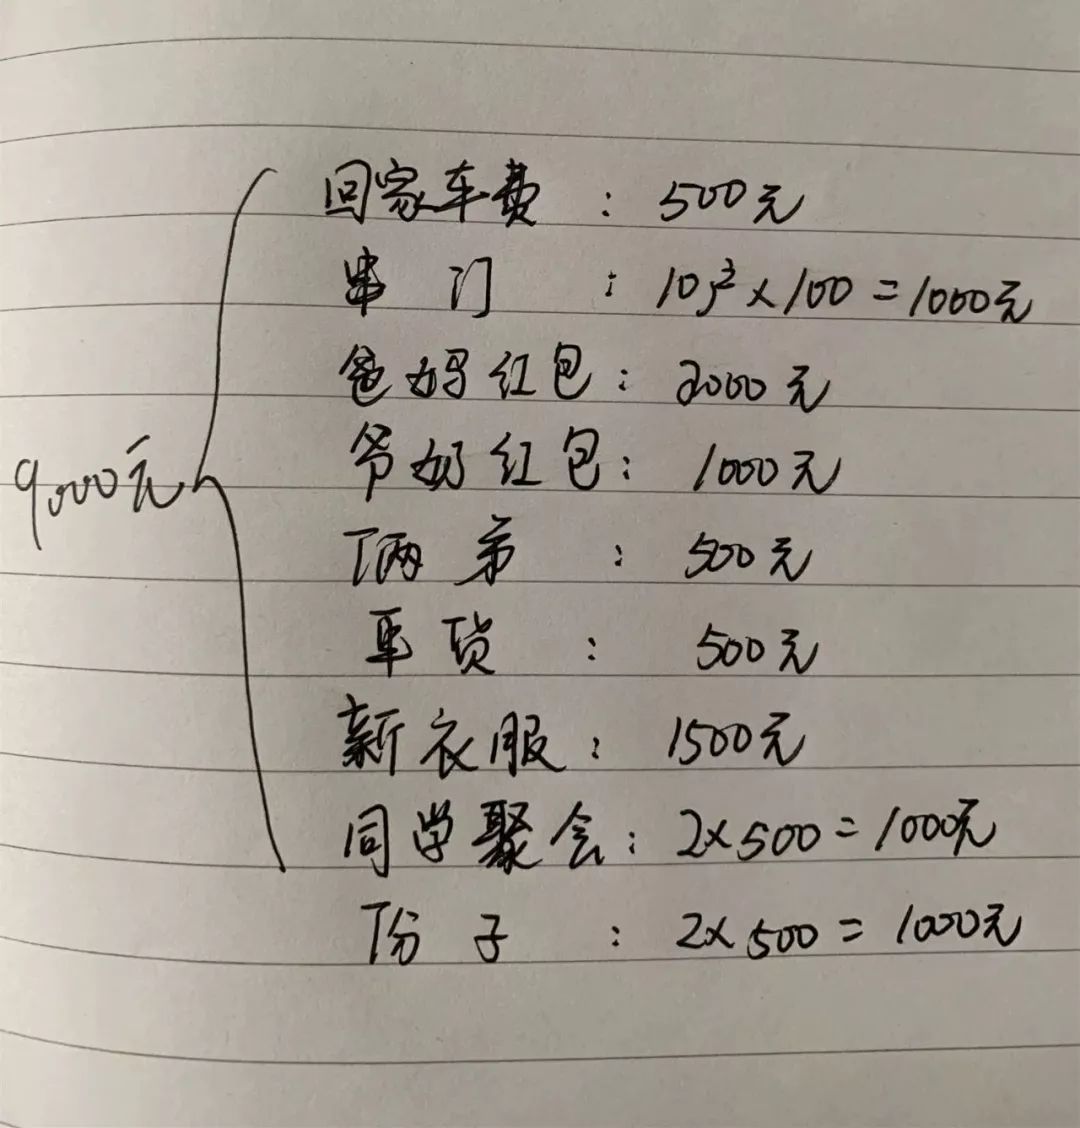 回家车费：500元
串门：10户×100=1000元
爸妈红包：2000元
爷奶红包：1000元
俩弟：500元
年货：500元
9000元
新衣服：1500元
同学聚会：2×500=1000元
份子：2×500=1000元